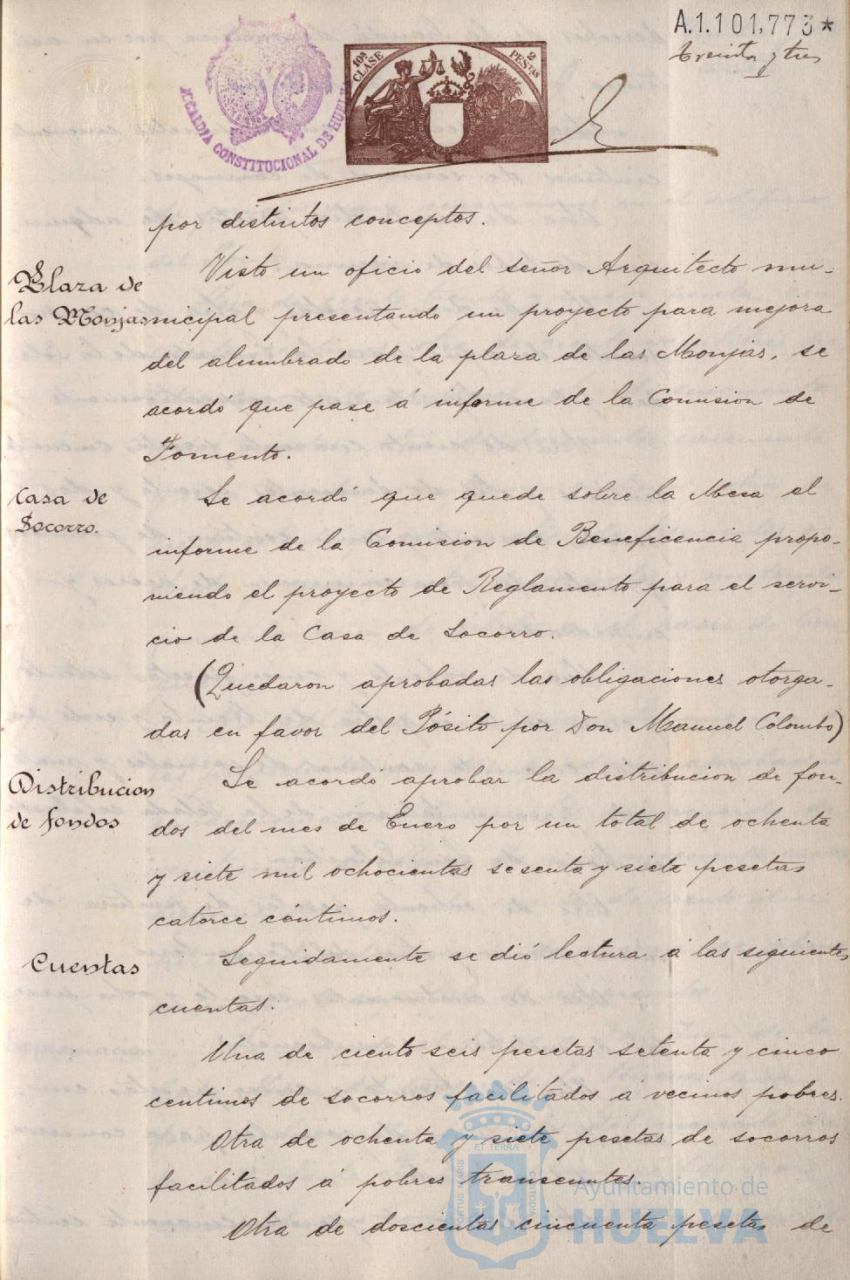 A.1.101,773*
treinta y tres
ALCALDIA CONSTITUCIONAL DE HUELVA
10ª CLASE
2 PESTAS
por distintos conceptos.
Plaza de las Monjas
Visto un oficio del señor Arquitecto mu-
nicipal presentando un proyecto para mejora
del alumbrado de la plaza de las Monjas, se
acordó que pase á informe de la Comision de
Fomento.
Casa de Socorro.
Se acordó que quede sobre la Mesa el
informe de la Comision de Beneficencia propo-
niendo el proyecto de Reglamento para el servi-
cio de la Casa de Socorro.
(Quedaron aprobadas las obligaciones otorga-
das en favor del Pósito por Don Manuel Colombo)
Distribucion de fondos
Se acordó aprobar la distribucion de fon-
dos del mes de Enero por un total de ochenta
y siete mil ochocientas sesenta y siete pesetas
catorce céntimos.
Cuentas
Seguidamente se dió lectura á las siguientes
cuentas.
Una de ciento seis pesetas setenta y cinco
centimos de socorros facilitados á vecinos pobres.
Otra de ochenta y siete pesetas de socorros
facilitados á pobres transeuntes.
Otra de doscientas cincuenta pesetas de
Ayuntamiento de
HUELVA